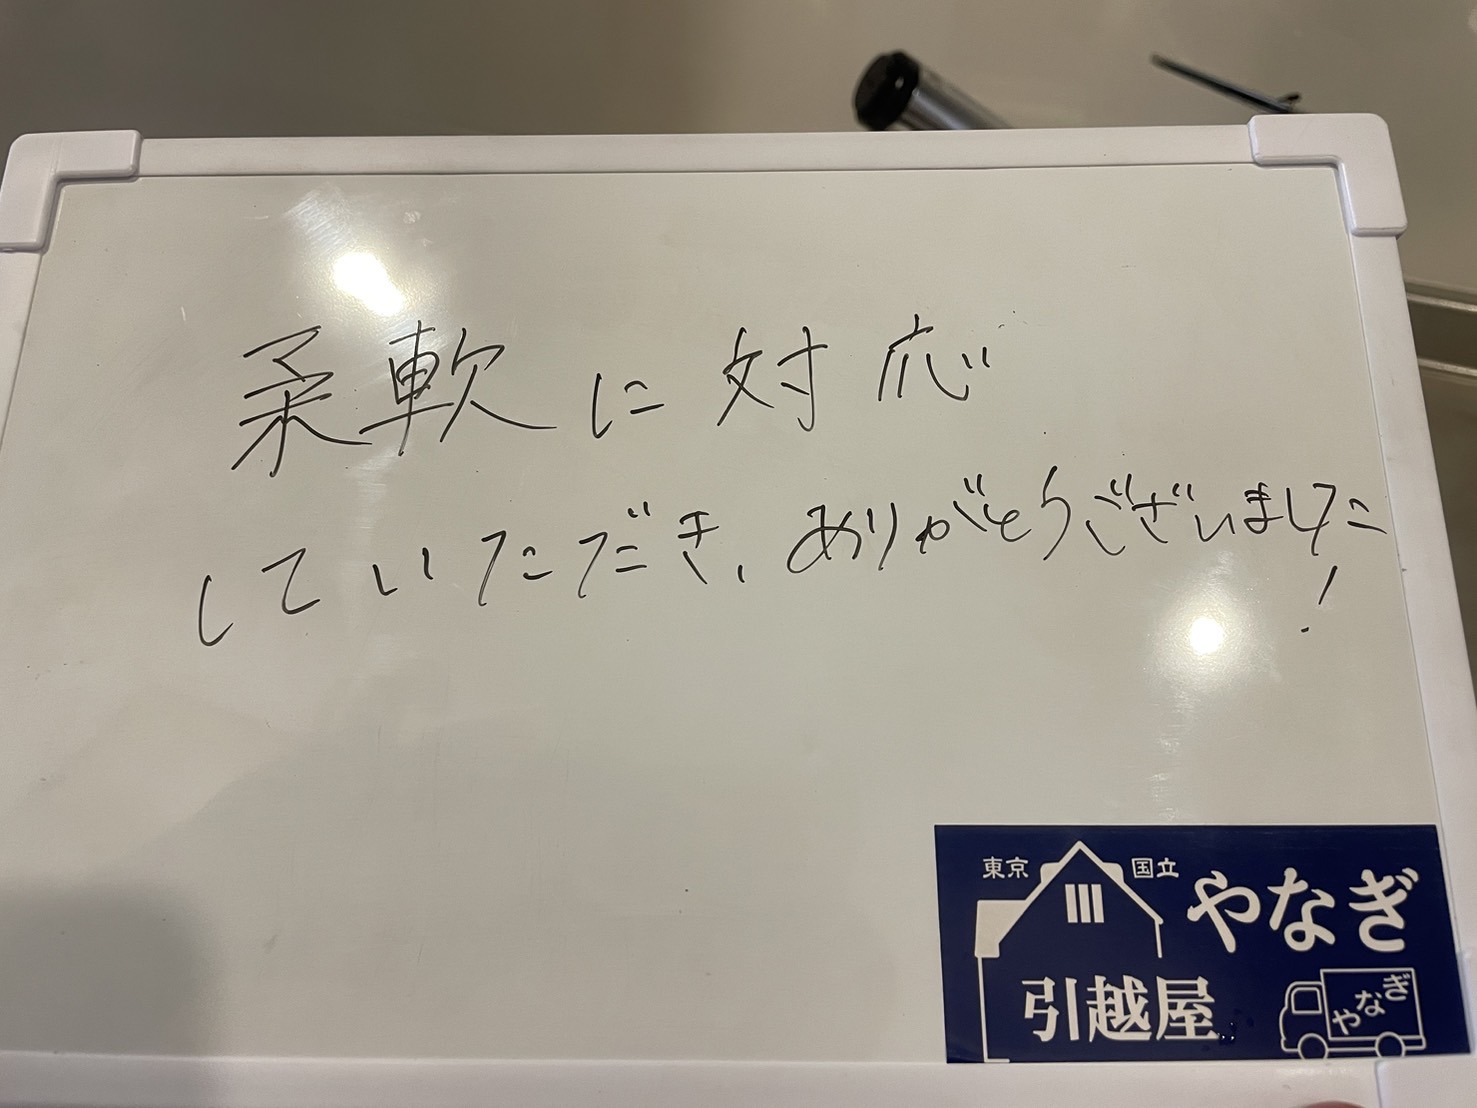 柔軟に対応
していただき、ありがとうございました
!
東京 国立 やなぎ
引越屋
やなぎ